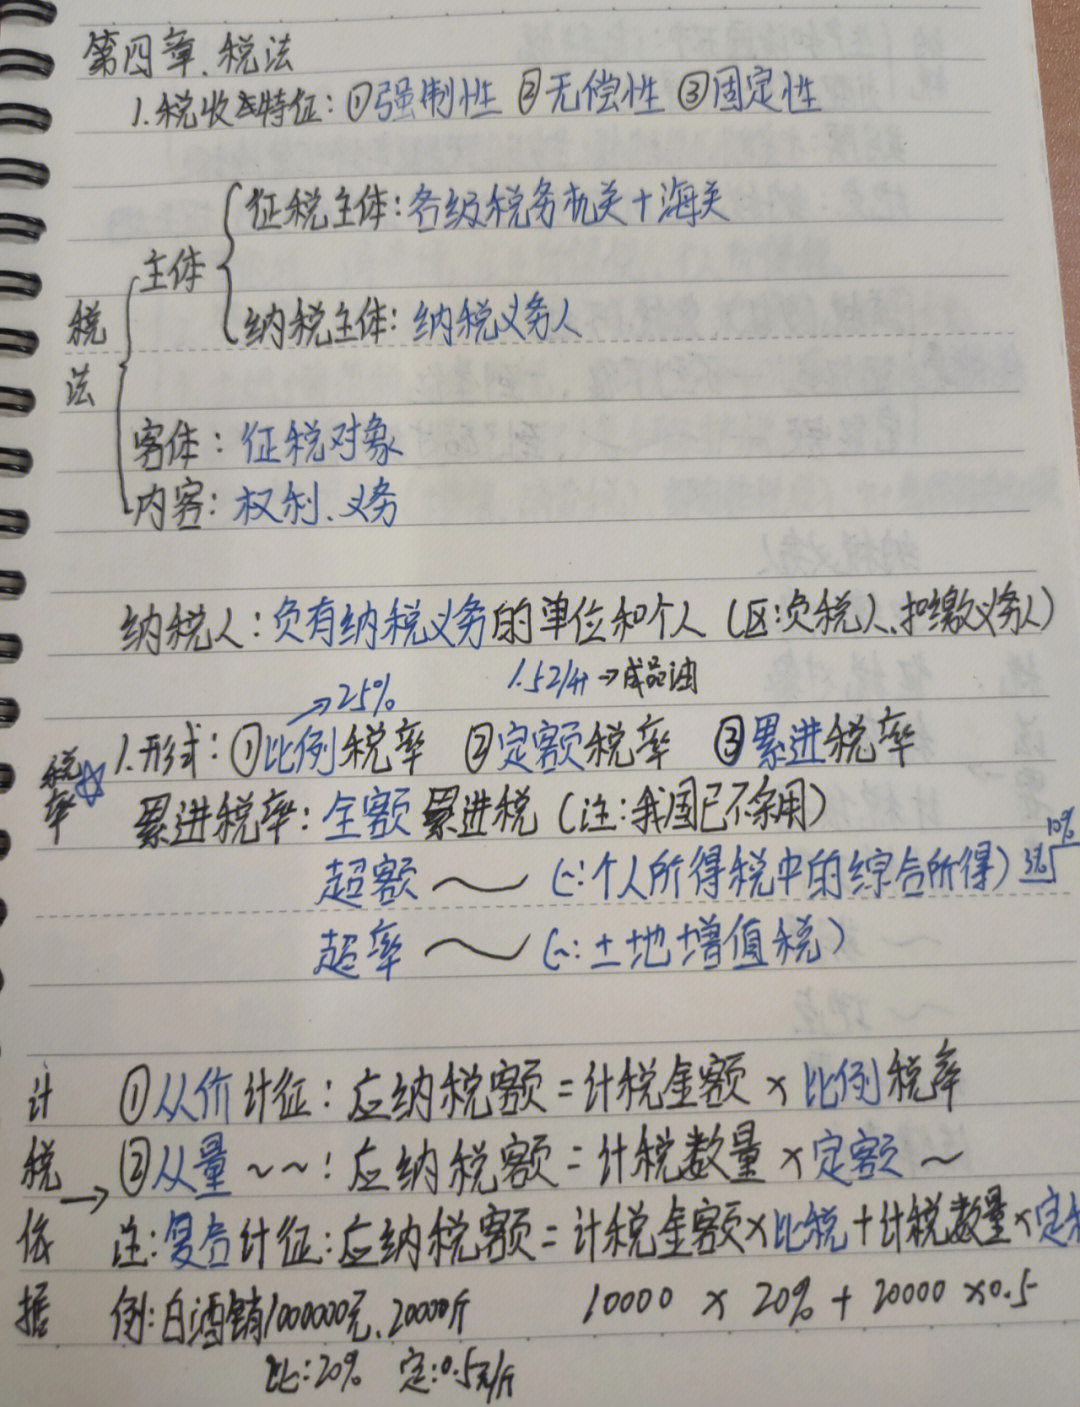 第四章、税法
1.税收之特征:①强制性 ②无偿性 ③固定性
征税主体:各级税务机关+海关
主体
纳税主体:纳税义务人
税法
客体:征税对象
内容:权利、义务
纳税人:负有纳税义务的单位和个人(区:负税人、扣缴义务人)
→25% 1.52/升→成品油
税率☆
1.形式:①比例税率 ②定额税率 ③累进税率
累进税率:全额累进税(注:我国已不采用)
超额~(~:个人所得税中的综合所得) 3% 10%
超率~(~:土地增值税)
计税依据→
①从价计征:应纳税额=计税金额×比例税率
②从量~~:应纳税额=计税数量×定额~
注:复合计征:应纳税额=计税金额×比税+计税数量×定税
例:白酒销1000000元、20000斤 10000×20%+20000×0.5
比:20% 定:0.5元/斤